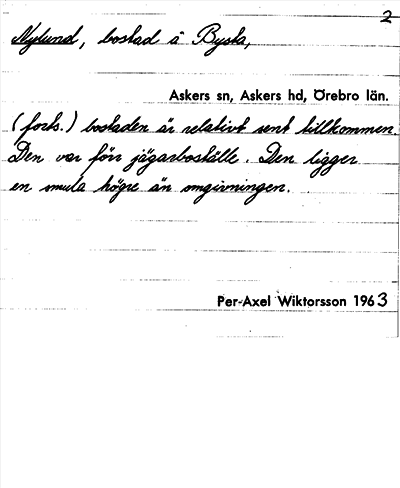 2
Nylund, bostad å Bysta,
Askers sn, Askers hd, Örebro län.
(forts.) bostaden är relativt sent tillkommen.
Den var förr jägarboställe. Den ligger
en smula högre än omgivningen.
Per-Axel Wiktorsson 1963